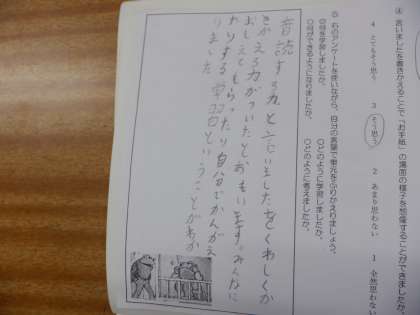 ④ 言いましたを書きかえることで「お手紙」の場面の様子を想像することができましたか。
4 とてもそう思う 3 そう思う 2 あまり思わない 1 全然思わない
⑤ 右のアンケートを使いながら、自分の言葉で単元をふりかえりましょう。
○何を学習しましたか。 ○どのように学習しましたか。
○何ができるようになりましたか。 ○どのように考えましたか。
音読する力と言いましたをくわしくか
きかえる力がついたとおもいます。みんなに
おしえてもらったり自分でかんがえ
たりする学習ということがわか
りました